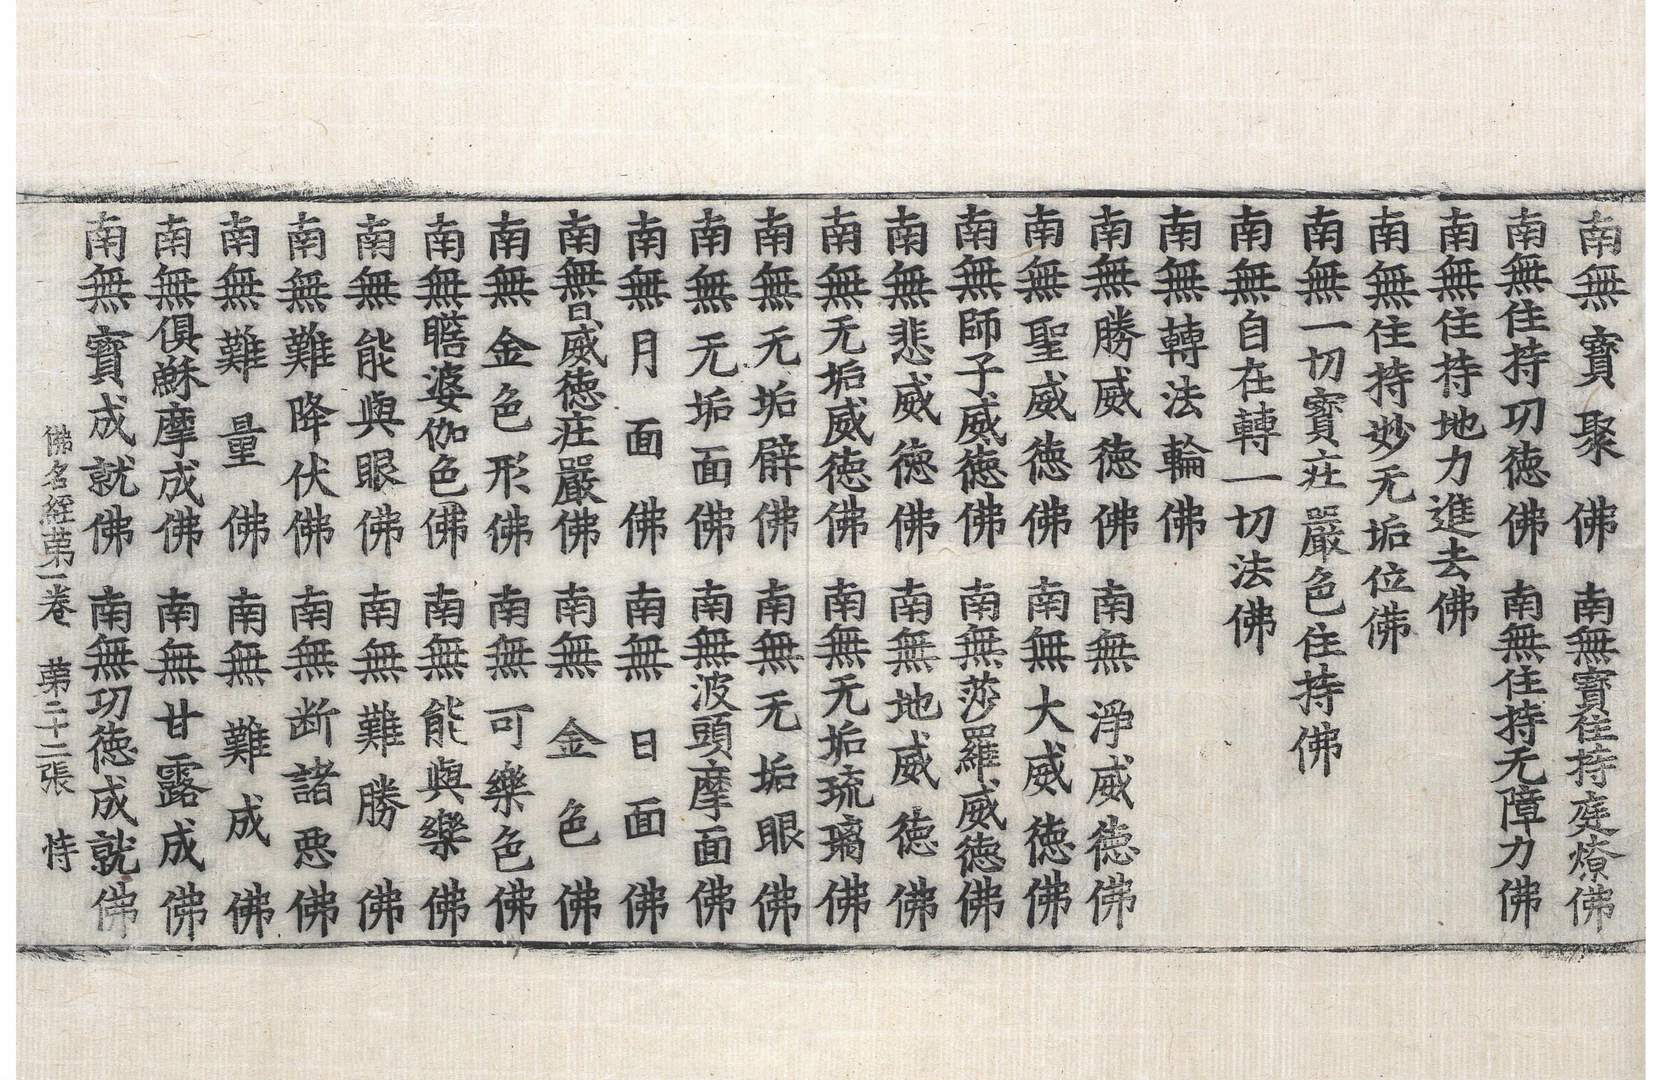 南無寶聚佛　南無寶住持庭燎佛
南無住持功德佛　南無住持无障力佛
南無住持地力進去佛
南無住持妙无垢位佛
南無一切寶莊嚴色住持佛
南無自在轉一切法佛
南無轉法輪佛
南無勝威德佛　南無淨威德佛
南無聖威德佛　南無大威德佛
南無師子威德佛　南無莎羅威德佛
南無悲威德佛　南無地威德佛
南無无垢威德佛　南無无垢琉璃佛
南無无垢臂佛　南無无垢眼佛
南無无垢面佛　南無波頭摩面佛
南無月面佛　南無日面佛
南無日威德莊嚴佛　南無金色佛
南無金色形佛　南無可樂色佛
南無瞻婆伽色佛　南無能與樂佛
南無能與眼佛　南無難勝佛
南無難降伏佛　南無断諸惡佛
南無難量佛　南無難成佛
南無俱蘇摩成佛　南無甘露成佛
南無寶成就佛　南無功德成就佛
佛名經苐一卷　苐二十二張　恃